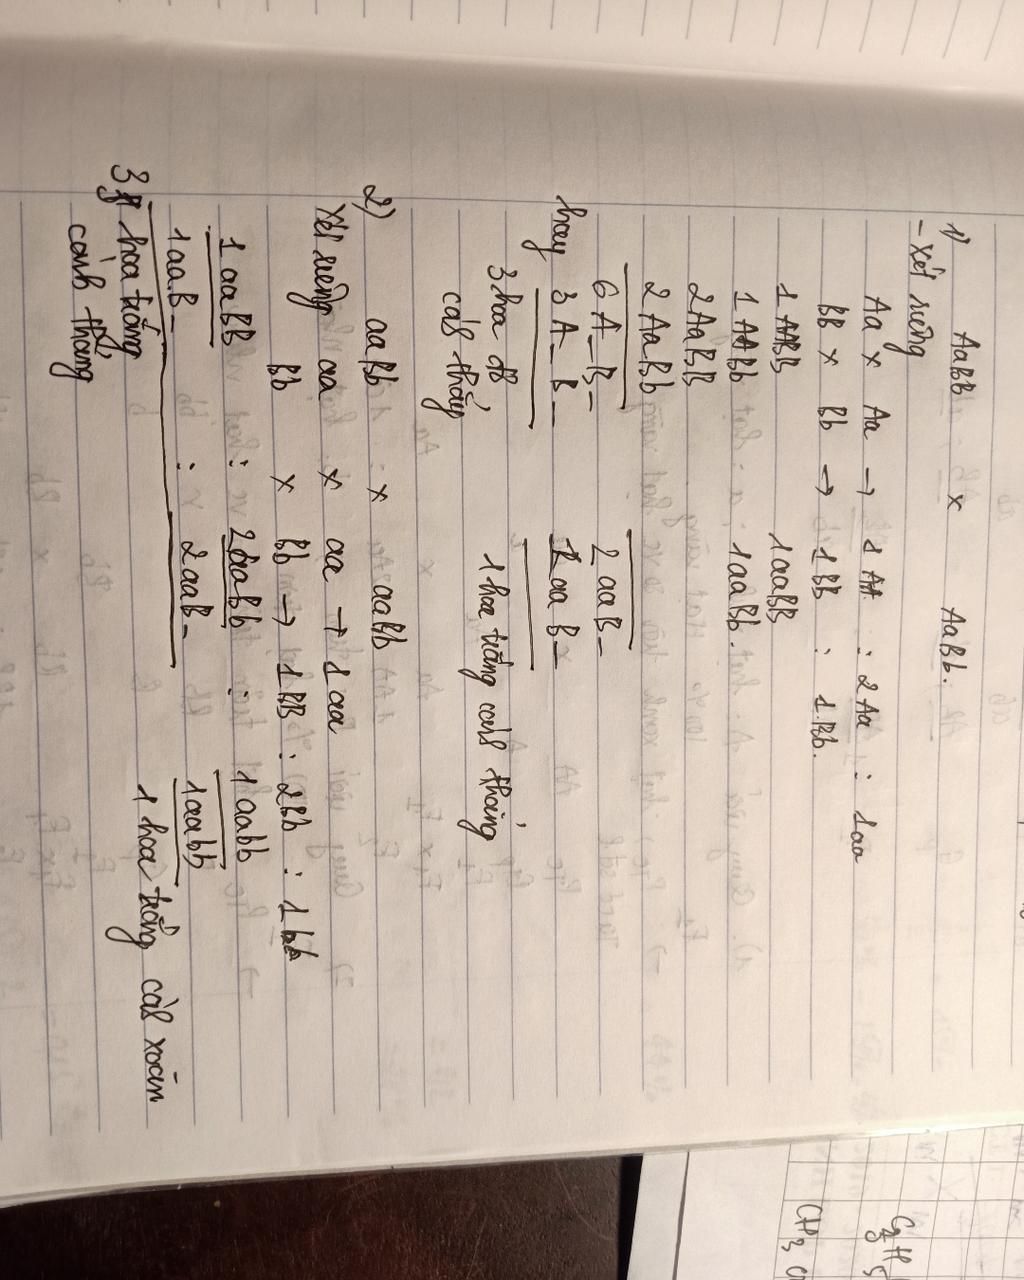 1) AaBB x AaBb.
- Xét riêng
Aa x Aa → 1 AA : 2Aa : 1aa
BB x Bb → 1BB : 1.Bb.
1 AABB 1aaBB
1 AABb 1aaBb.
2AaBB
2AaBb
6A-B- 2 aaB-
hay 3 A-B- 1 aa B-
3 hoa đỏ 1 hoa trắng cánh thẳng
cánh thẳng
2) aaBb x aaBb
Xét riêng aa x aa → 1 aa
Bb x Bb → 1BB : 2Bb : 1bb
1 aaBB : 2aaBb : 1 aabb
1aaB- : 2aaB- 1aabb
3 hoa trắng 1 hoa trắng cánh xoăn
cánh thẳng
C3H5
CH3